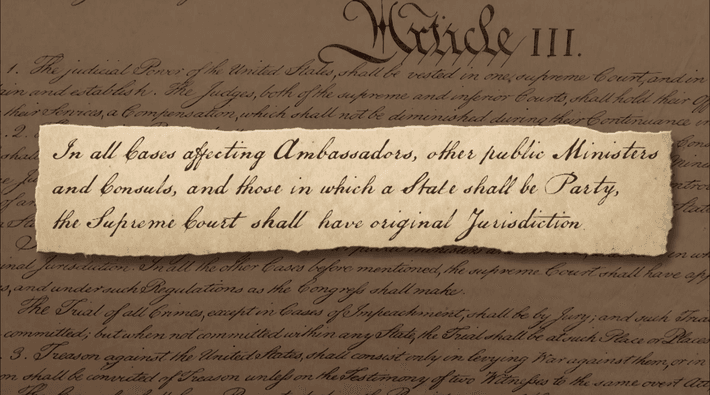 Article III.
1. The judicial Power of the United States, shall be vested in one supreme Court, and in
ain and establish. The Judges, both of the supreme and inferior Courts, shall hold their Off
their Services, a Compensation, which shall not be diminished during their Continuance in
2.
In all Cases affecting Ambassadors, other public Ministers
and Consuls, and those in which a State shall be Party,
the Supreme Court shall have original Jurisdiction
nal Jurisdiction. In all the other Cases before mentioned, the supreme Court shall have app
s, and under such Regulations as the Congress shall make.
The Trial of all Crimes, except in Cases of Impeachment, shall be by Jury; and such Trial
committed; but when not committed within any State, the Trial shall be at such Place or Places
3. Treason against the United States, shall consist only in levying War against them, or in
n shall be convicted of Treason unless on the Testimony of two Witnesses to the same overt Act